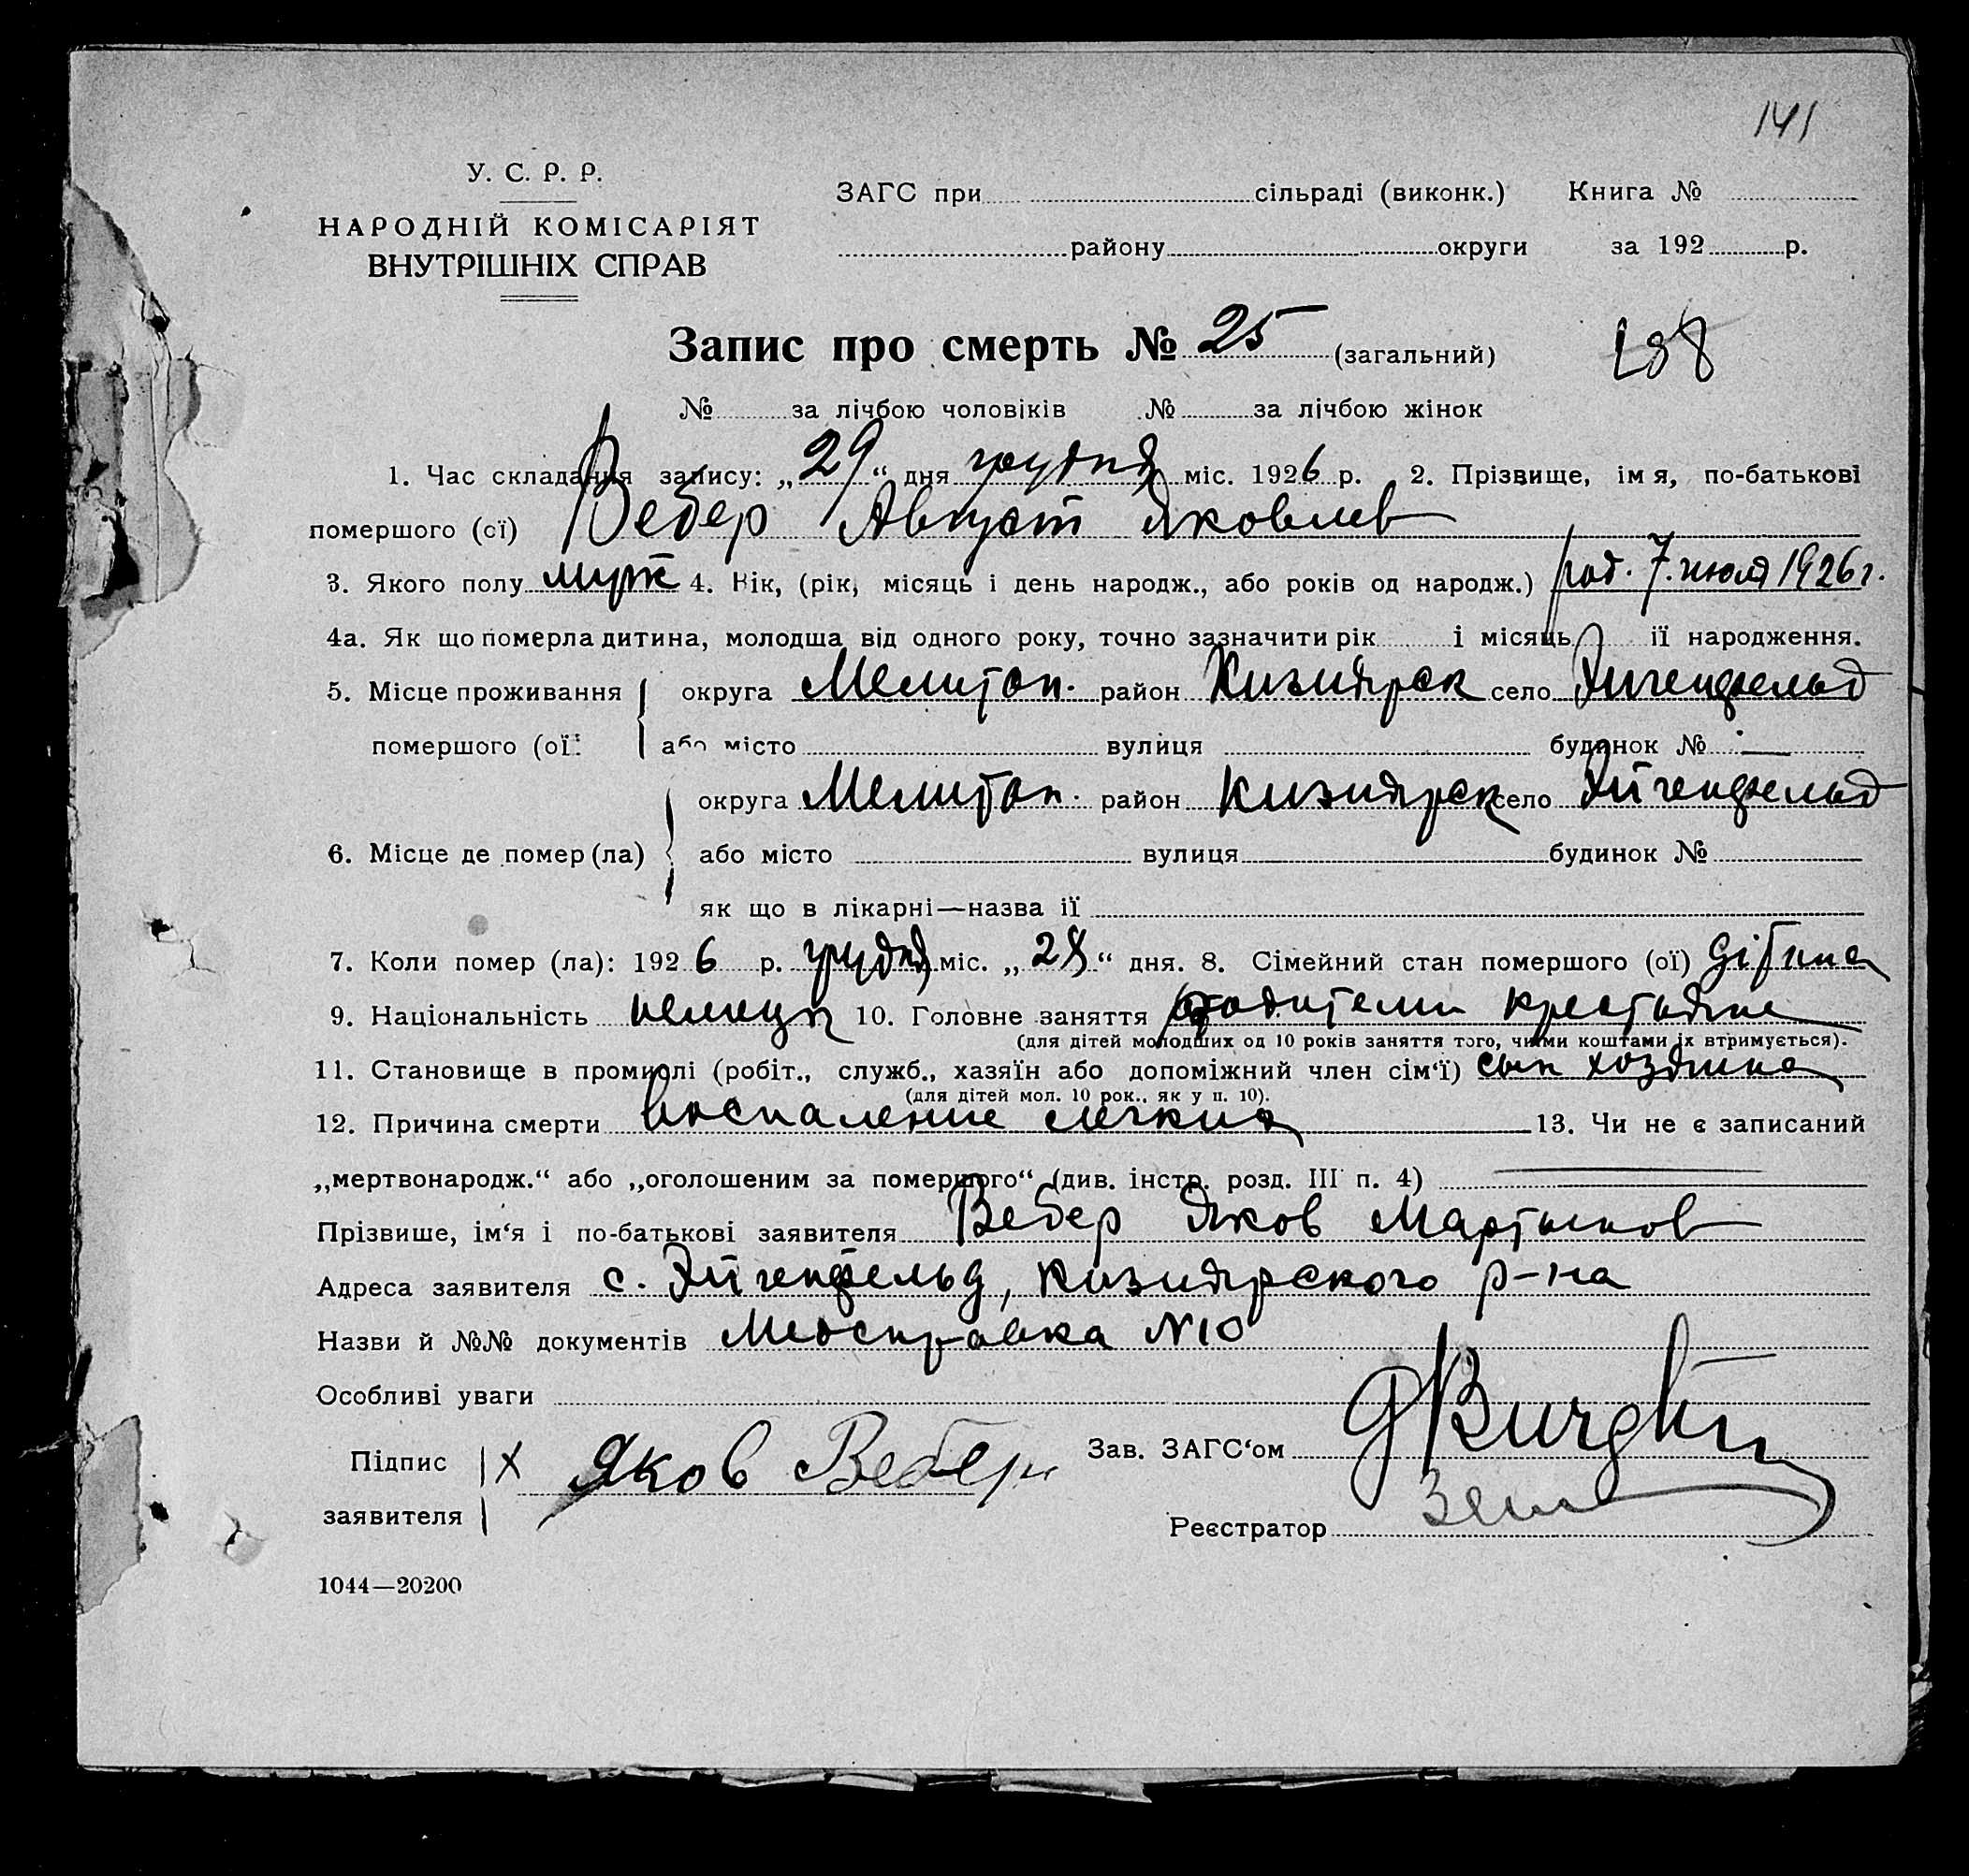 141
У. С. Р. Р.
НАРОДНІЙ КОМІСАРІЯТ
ВНУТРІШНІХ СПРАВ
ЗАГС при сільраді (виконк.) Книга №
району округи за 192 р.
Запис про смерть № 25 (загальний)
188
№ за лічбою чоловіків № за лічбою жінок
1. Час складання запису: „29“ дня грудня міс. 1926 р. 2. Прізвище, ім я, по-батькові
помершого (сї) Вебер Август Яковлев
3. Якого полу муж 4. Вік, (рік, місяць і день народж., або років од народж.) род. 7. июля 1926 г.
4а. Як що померла дитина, молодша від одного року, точно зазначити рік і місяць її народження.
5. Місце проживання округа Мелитоп. район Кизиярск село Эйгенфельд
помершого (ої) або місто вулиця будинок № —
округа Мелитоп. район Кизиярск село Эйгенфельд
6. Місце де помер (ла) або місто вулиця будинок №
як що в лікарні—назва ії
7. Коли помер (ла): 1926 р. грудня міс. „28“ дня. 8. Сімейний стан помершого (ої) дітина
9. Національність немецк 10. Головне заняття родители крестьяне
(для дітей молодших од 10 років заняття того, чиїми коштами їх втримується).
11. Становище в промислі (робіт., служб., хазяїн або допоміжний член сім‘ї) сын хозяина
(для дітей мол. 10 рок., як у п. 10).
12. Причина смерти воспаление легких 13. Чи не є записаний
„мертвонародж.“ або „оголошеним за помершого“ (див. інстр. розд. III п. 4)
Прізвише, ім‘я і по-батькові заявителя Вебер Яков Мартынов
Адреса заявителя с. Эйгенфельд, Кизиярского р-на
Назви й №№ документів Медсправка N10
Особливі уваги
Підпис X Яков Вебер Зав. ЗАГС‘ом
заявителя Реєстратор
1044—20200